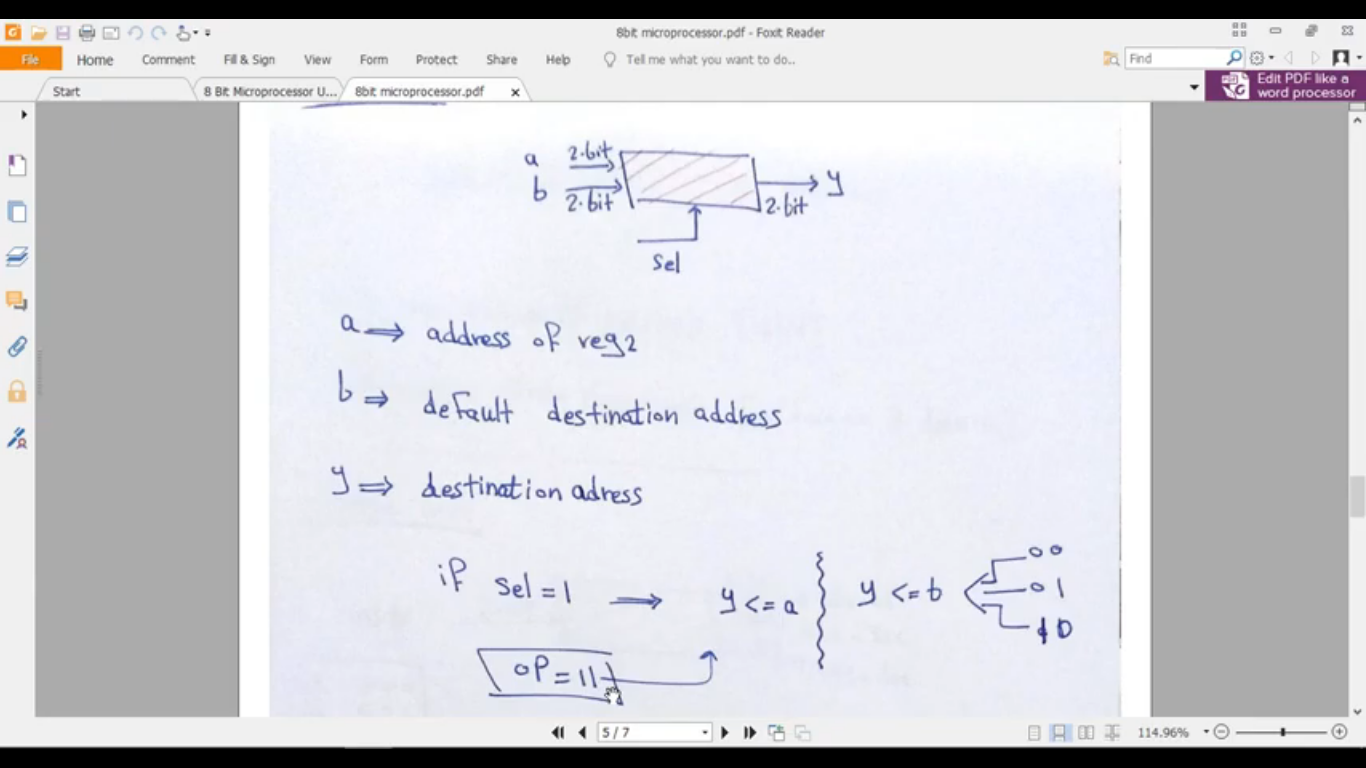 8bit microprocessor.pdf - Foxit Reader
File Home Comment Fill & Sign View Form Protect Share Help Tell me what you want to do.. Find
Start 8 Bit Microprocessor U... 8bit microprocessor.pdf Edit PDF like a
word processor
a 2.bit
b 2.bit
y
2.bit
sel
a ⇒ address of reg2
b ⇒ default destination address
y ⇒ destination adress
if sel = 1 → y <= a y <= b 00
01
10
OP = 11
5 / 7 114.96%